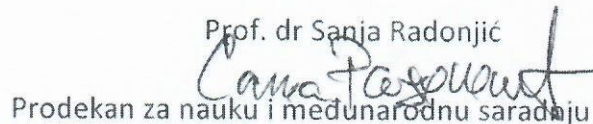 Prof. dr Sanja Radonjić
Сања Радоњић
Prodekan za nauku i međunarodnu saradnju